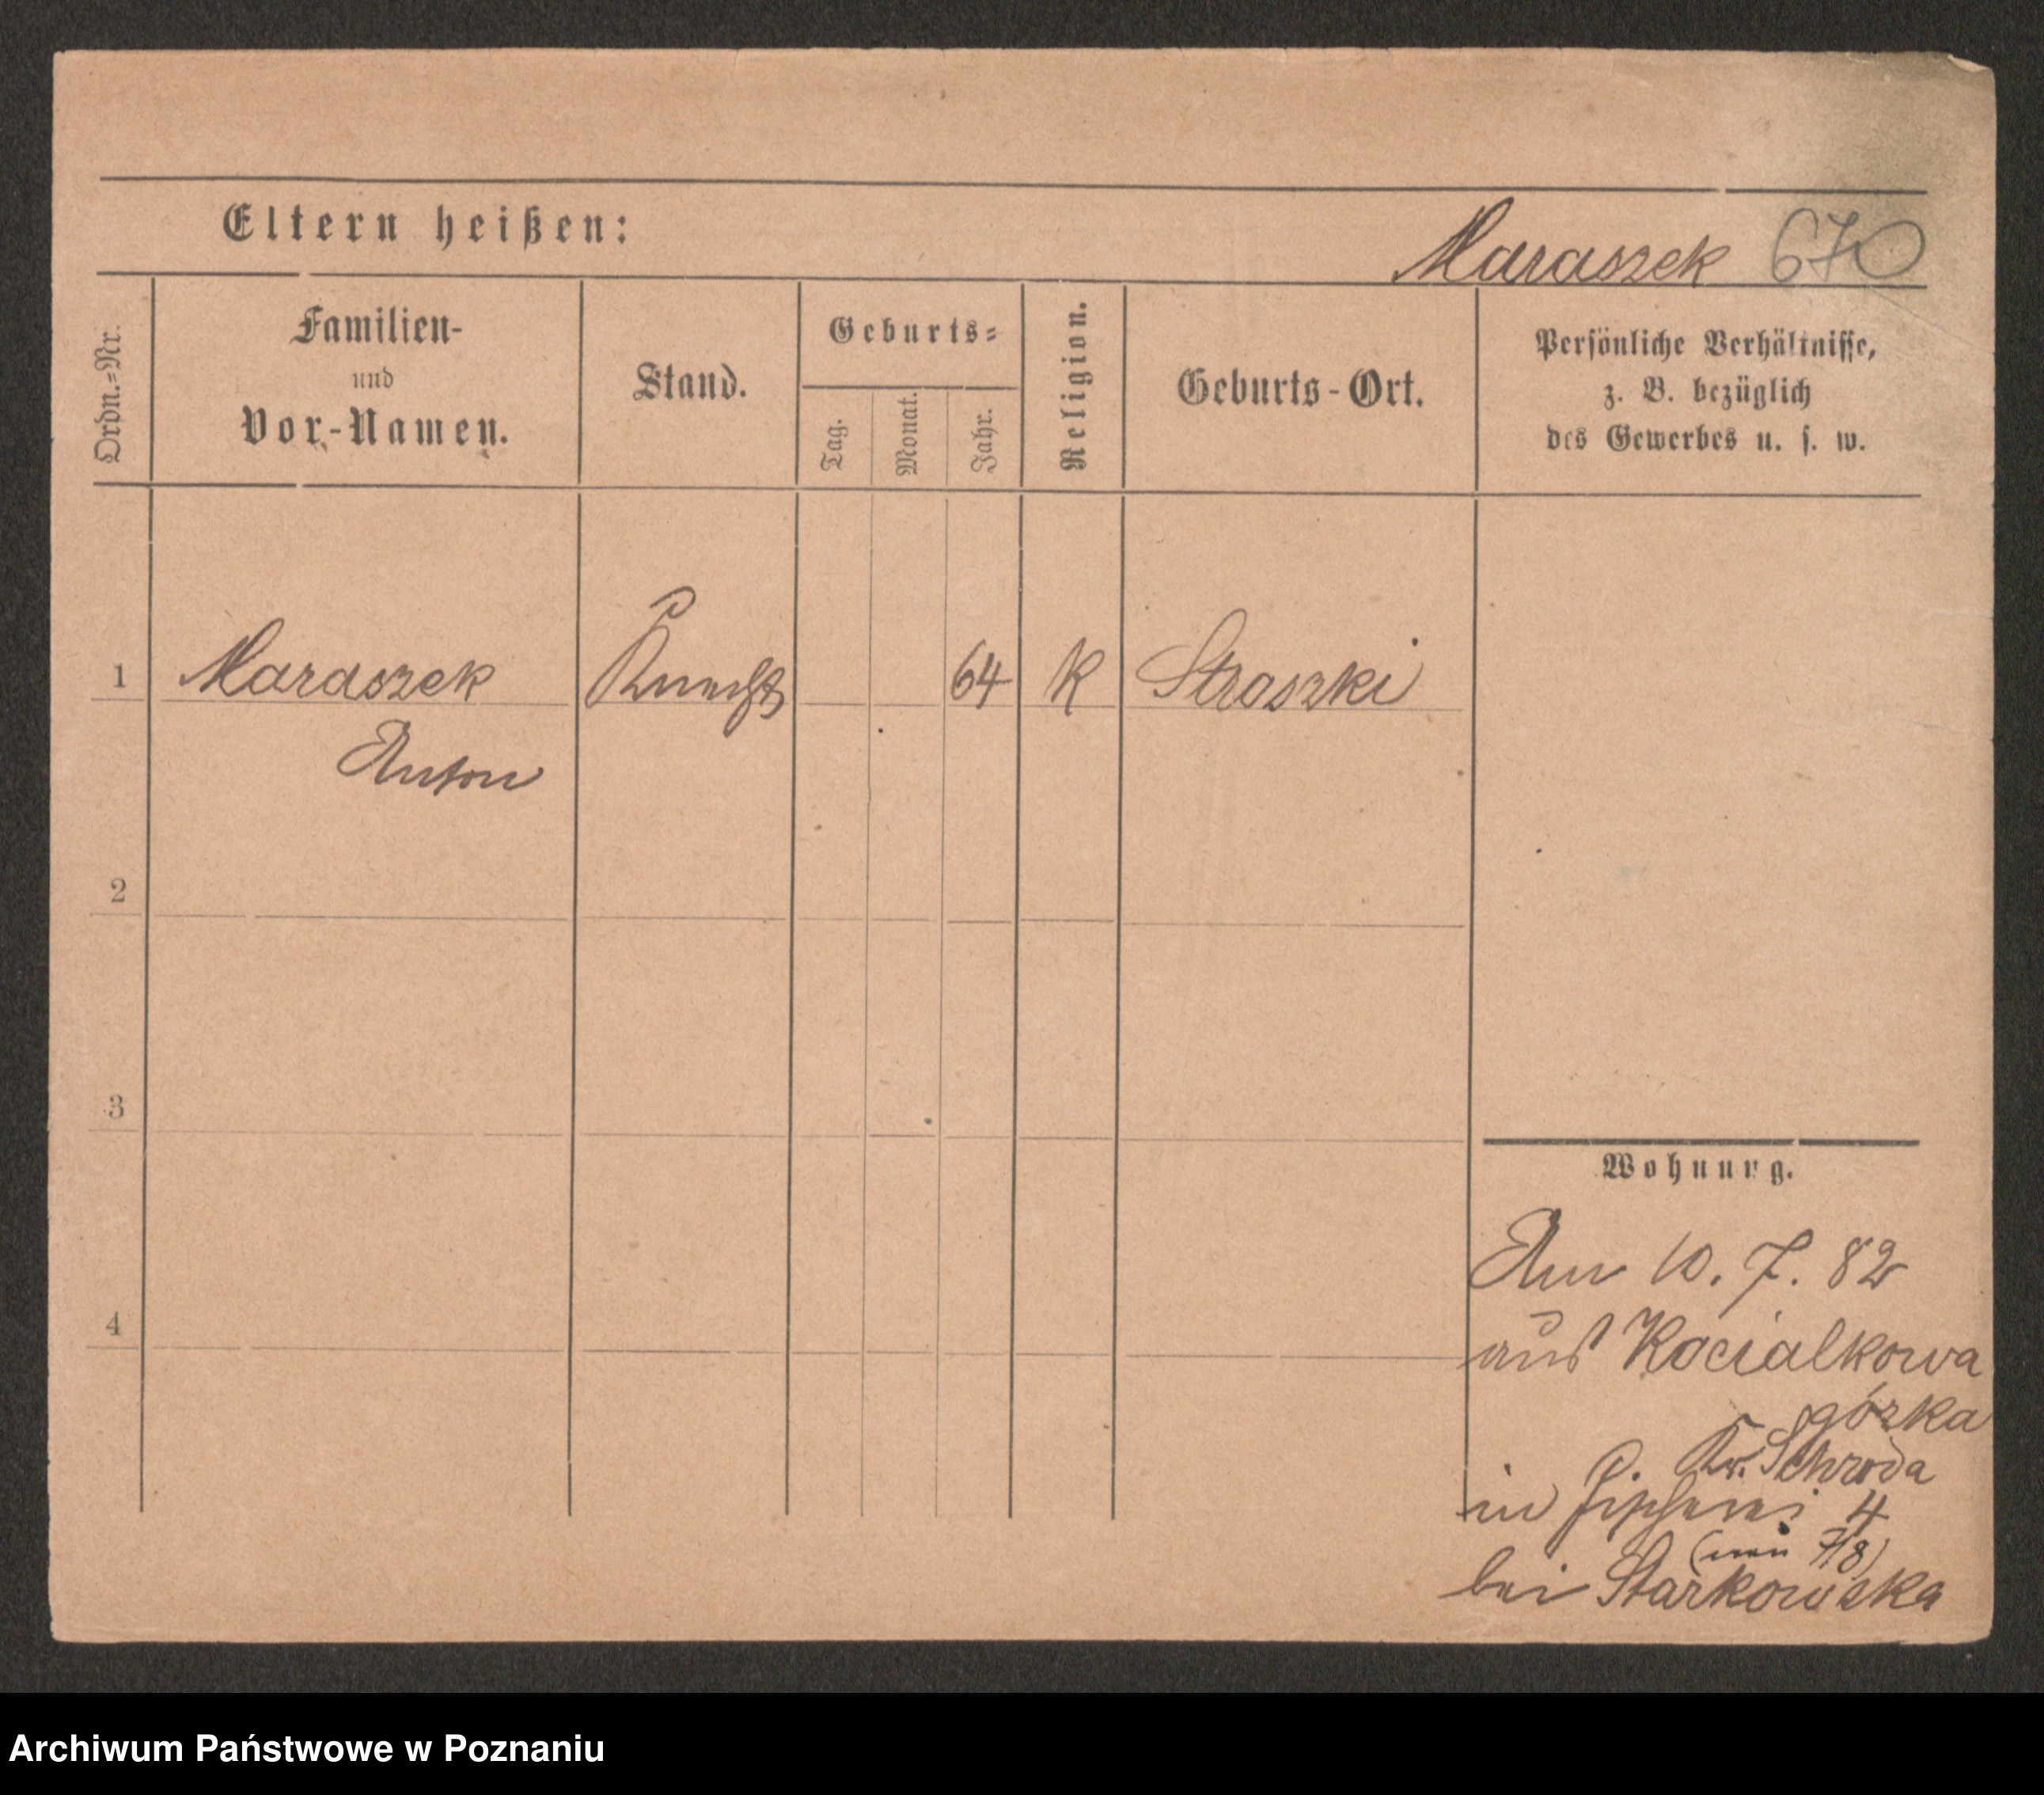 Eltern heißen:
Maraszek 670
Ordn.=Nr.
Familien-
und
Vor-Namen.
Stand.
Geburts=
Tag.
Monat.
Jahr.
Religion.
Geburts-Ort.
Persönliche Verhältnisse,
z. B. bezüglich
des Gewerbes u. s. w.
1 Maraszek Knecht 64 K Straszki
Anton
2
3
4
Wohnung.
Am 10. 7. 82
aus Kocialkowa
górka
Kr. Schroda
in Fischerei 4
(neu 7/8)
bei Starkowska
Archiwum Państwowe w Poznaniu